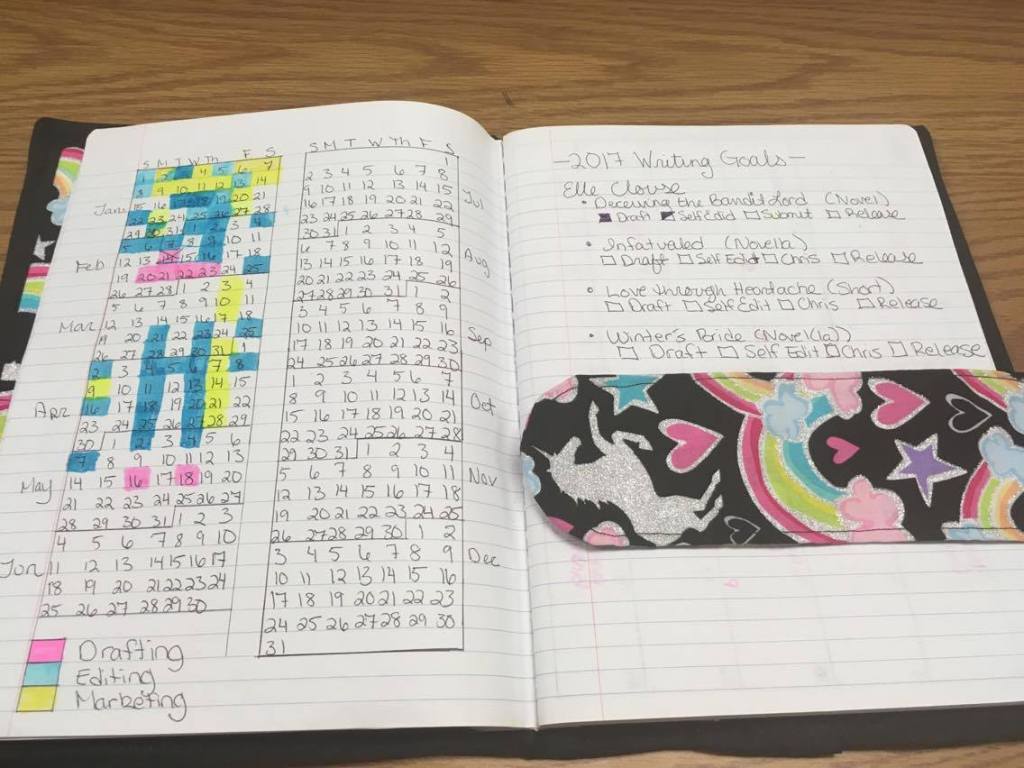 S M T W Th F S
1 2 3 4 5 6 7
8 9 10 11 12 13 14
Jan 15 16 17 18 19 20 21
22 23 24 25 26 27 28
29 30 31 1 2 3 4
5 6 7 8 9 10 11
Feb 12 13 14 15 16 17 18
19 20 21 22 23 24 25
26 27 28 1 2 3 4
5 6 7 8 9 10 11
Mar 12 13 14 15 16 17 18
19 20 21 22 23 24 25
26 27 28 29 30 31 1
2 3 4 5 6 7 8
9 10 11 12 13 14 15
Apr 16 17 18 19 20 21 22
23 24 25 26 27 28 29
30 1 2 3 4 5 6
7 8 9 10 11 12 13
May 14 15 16 17 18 19 20
21 22 23 24 25 26 27
28 29 30 31 1 2 3
4 5 6 7 8 9 10
Jun 11 12 13 14 15 16 17
18 19 20 21 22 23 24
25 26 27 28 29 30
Drafting
Editing
Marketing
S M T W Th F S
1
2 3 4 5 6 7 8
9 10 11 12 13 14 15
16 17 18 19 20 21 22 Jul
23 24 25 26 27 28 29
30 31 1 2 3 4 5
6 7 8 9 10 11 12
13 14 15 16 17 18 19 Aug
20 21 22 23 24 25 26
27 28 29 30 31 1 2
3 4 5 6 7 8 9
10 11 12 13 14 15 16
17 18 19 20 21 22 23 Sep
24 25 26 27 28 29 30
1 2 3 4 5 6 7
8 9 10 11 12 13 14 Oct
15 16 17 18 19 20 21
22 23 24 25 26 27 28
29 30 31 1 2 3 4
5 6 7 8 9 10 11 Nov
12 13 14 15 16 17 18
19 20 21 22 23 24 25
26 27 28 29 30 1 2
3 4 5 6 7 8 9 Dec
10 11 12 13 14 15 16
17 18 19 20 21 22 23
24 25 26 27 28 29 30
31
- 2017 Writing Goals -
Elle Clouse
• Deceiving the Bandit Lord (Novel)
Draft Self Edid Submit Release
• Infatuated (Novella)
Draft Self Edit Chris Release
• Love through Heartache (Short)
Draft Self Edit Chris Release
• Winter's Bride (Novel(la))
Draft Self Edit Chris Release